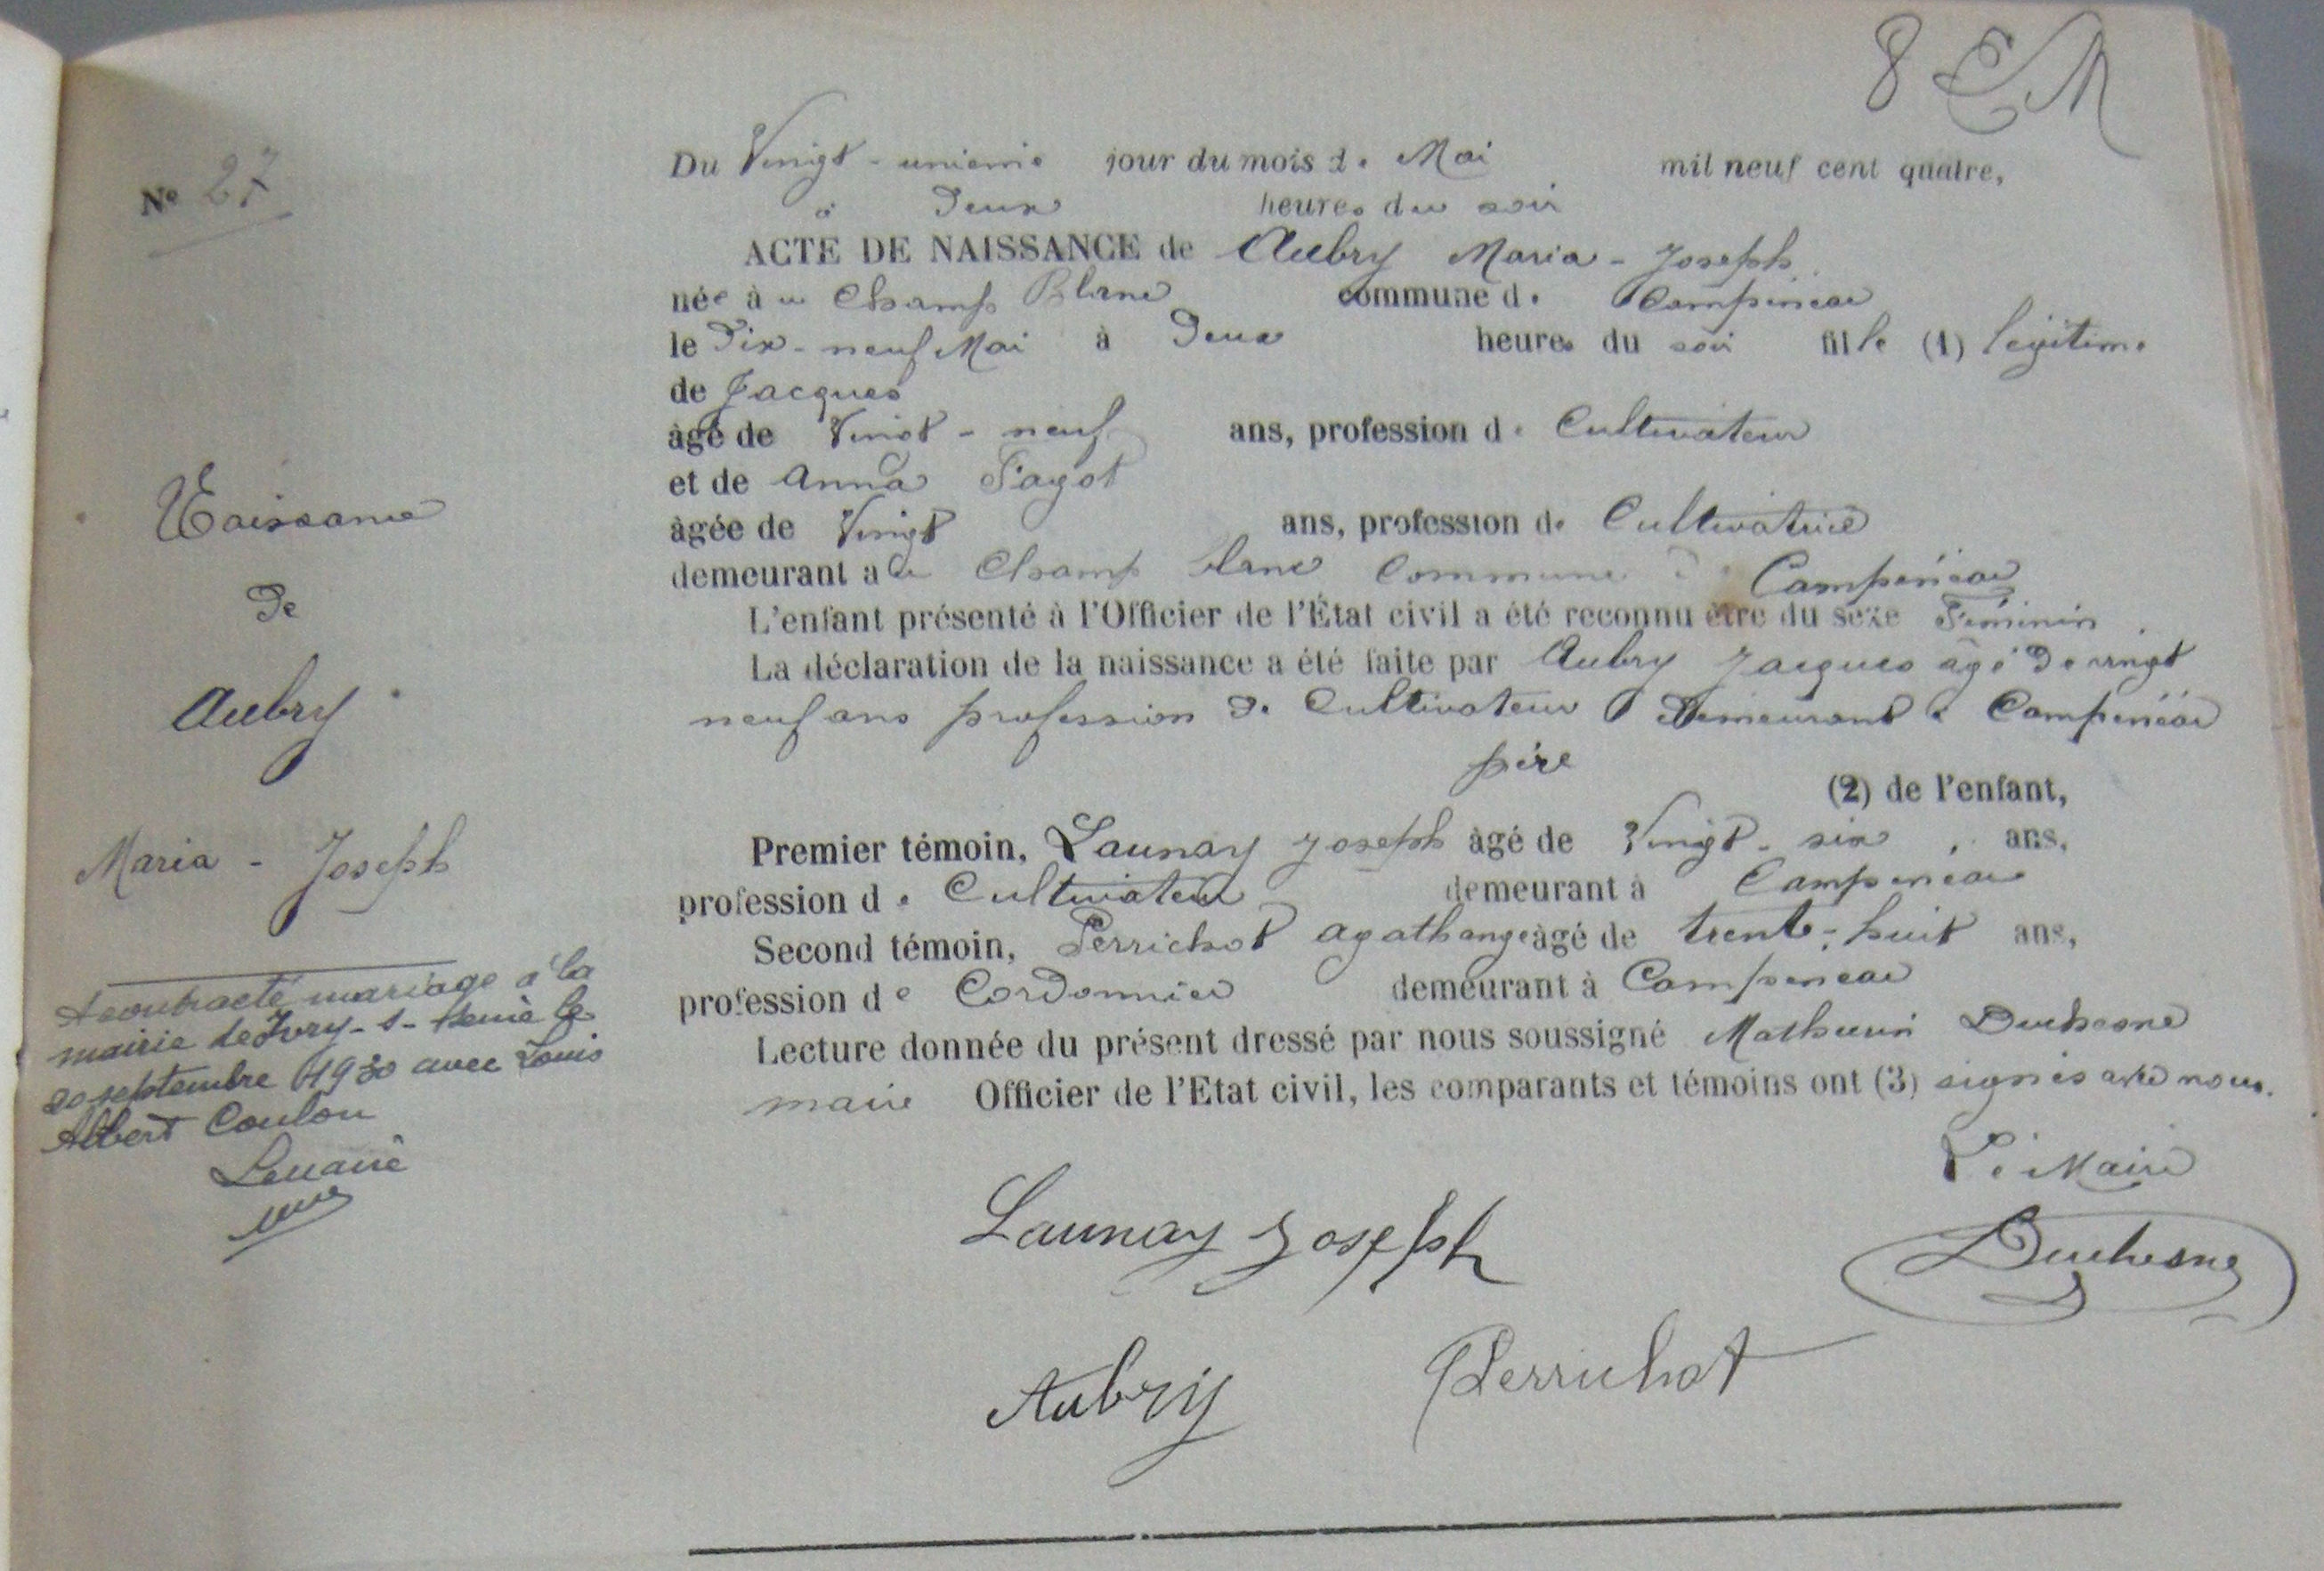 8 EM
N° 27
Naissance
de
Aubry
Maria - Joseph
A contracté mariage à la
mairie de Ivry-s-Seine le
20 septembre 1930 avec Louis
Albert Coulon
Le maire
Du Vingt-unieme jour du mois de Mai mil neuf cent quatre,
à Deux heures du soir
ACTE DE NAISSANCE de Aubry Maria - Joseph
née à u Champ Blanc commune de Campénéac
le Dix-neuf Mai à Deux heures du soir fille (1) légitime
de Jacques
âgé de Vingt-neuf ans, profession de Cultivateur
et de Anna Fagot
âgée de Vingt ans, profession de Cultivatrice
demeurant au Champ blanc Commune de Campénéac
L'enfant présenté à l'Officier de l'État civil a été reconnu être du sexe Féminin
La déclaration de la naissance a été faite par Aubry Jacques âgé de vingt
neuf ans profession de Cultivateur Demeurant à Campénéac
père
(2) de l'enfant,
Premier témoin, Launay Joseph âgé de Vingt-six ans,
profession de Cultivateur demeurant à Campénéac
Second témoin, Perrichot agathange âgé de trente-huit ans,
profession de Cordonnier demeurant à Campénéac
Lecture donnée du présent dressé par nous soussigné Mathurin Duchesne
maire Officier de l'Etat civil, les comparants et témoins ont (3) signés avec nous.
Le Maire
Launay Joseph
Duchesne
Aubry Perrichot